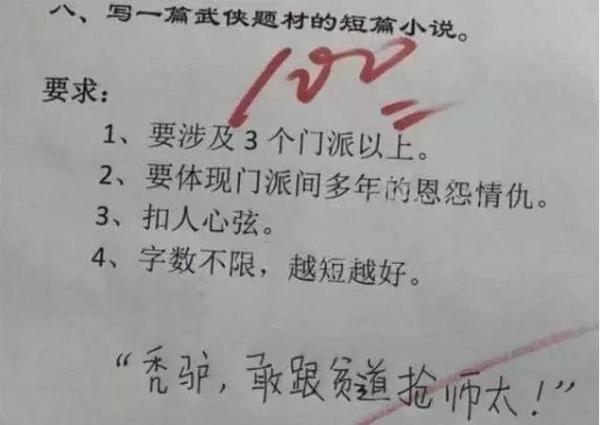 八、写一篇武侠题材的短篇小说。
100
要求：
1、要涉及3个门派以上。
2、要体现门派间多年的恩怨情仇。
3、扣人心弦。
4、字数不限，越短越好。
“秃驴，敢跟贫道抢师太！”